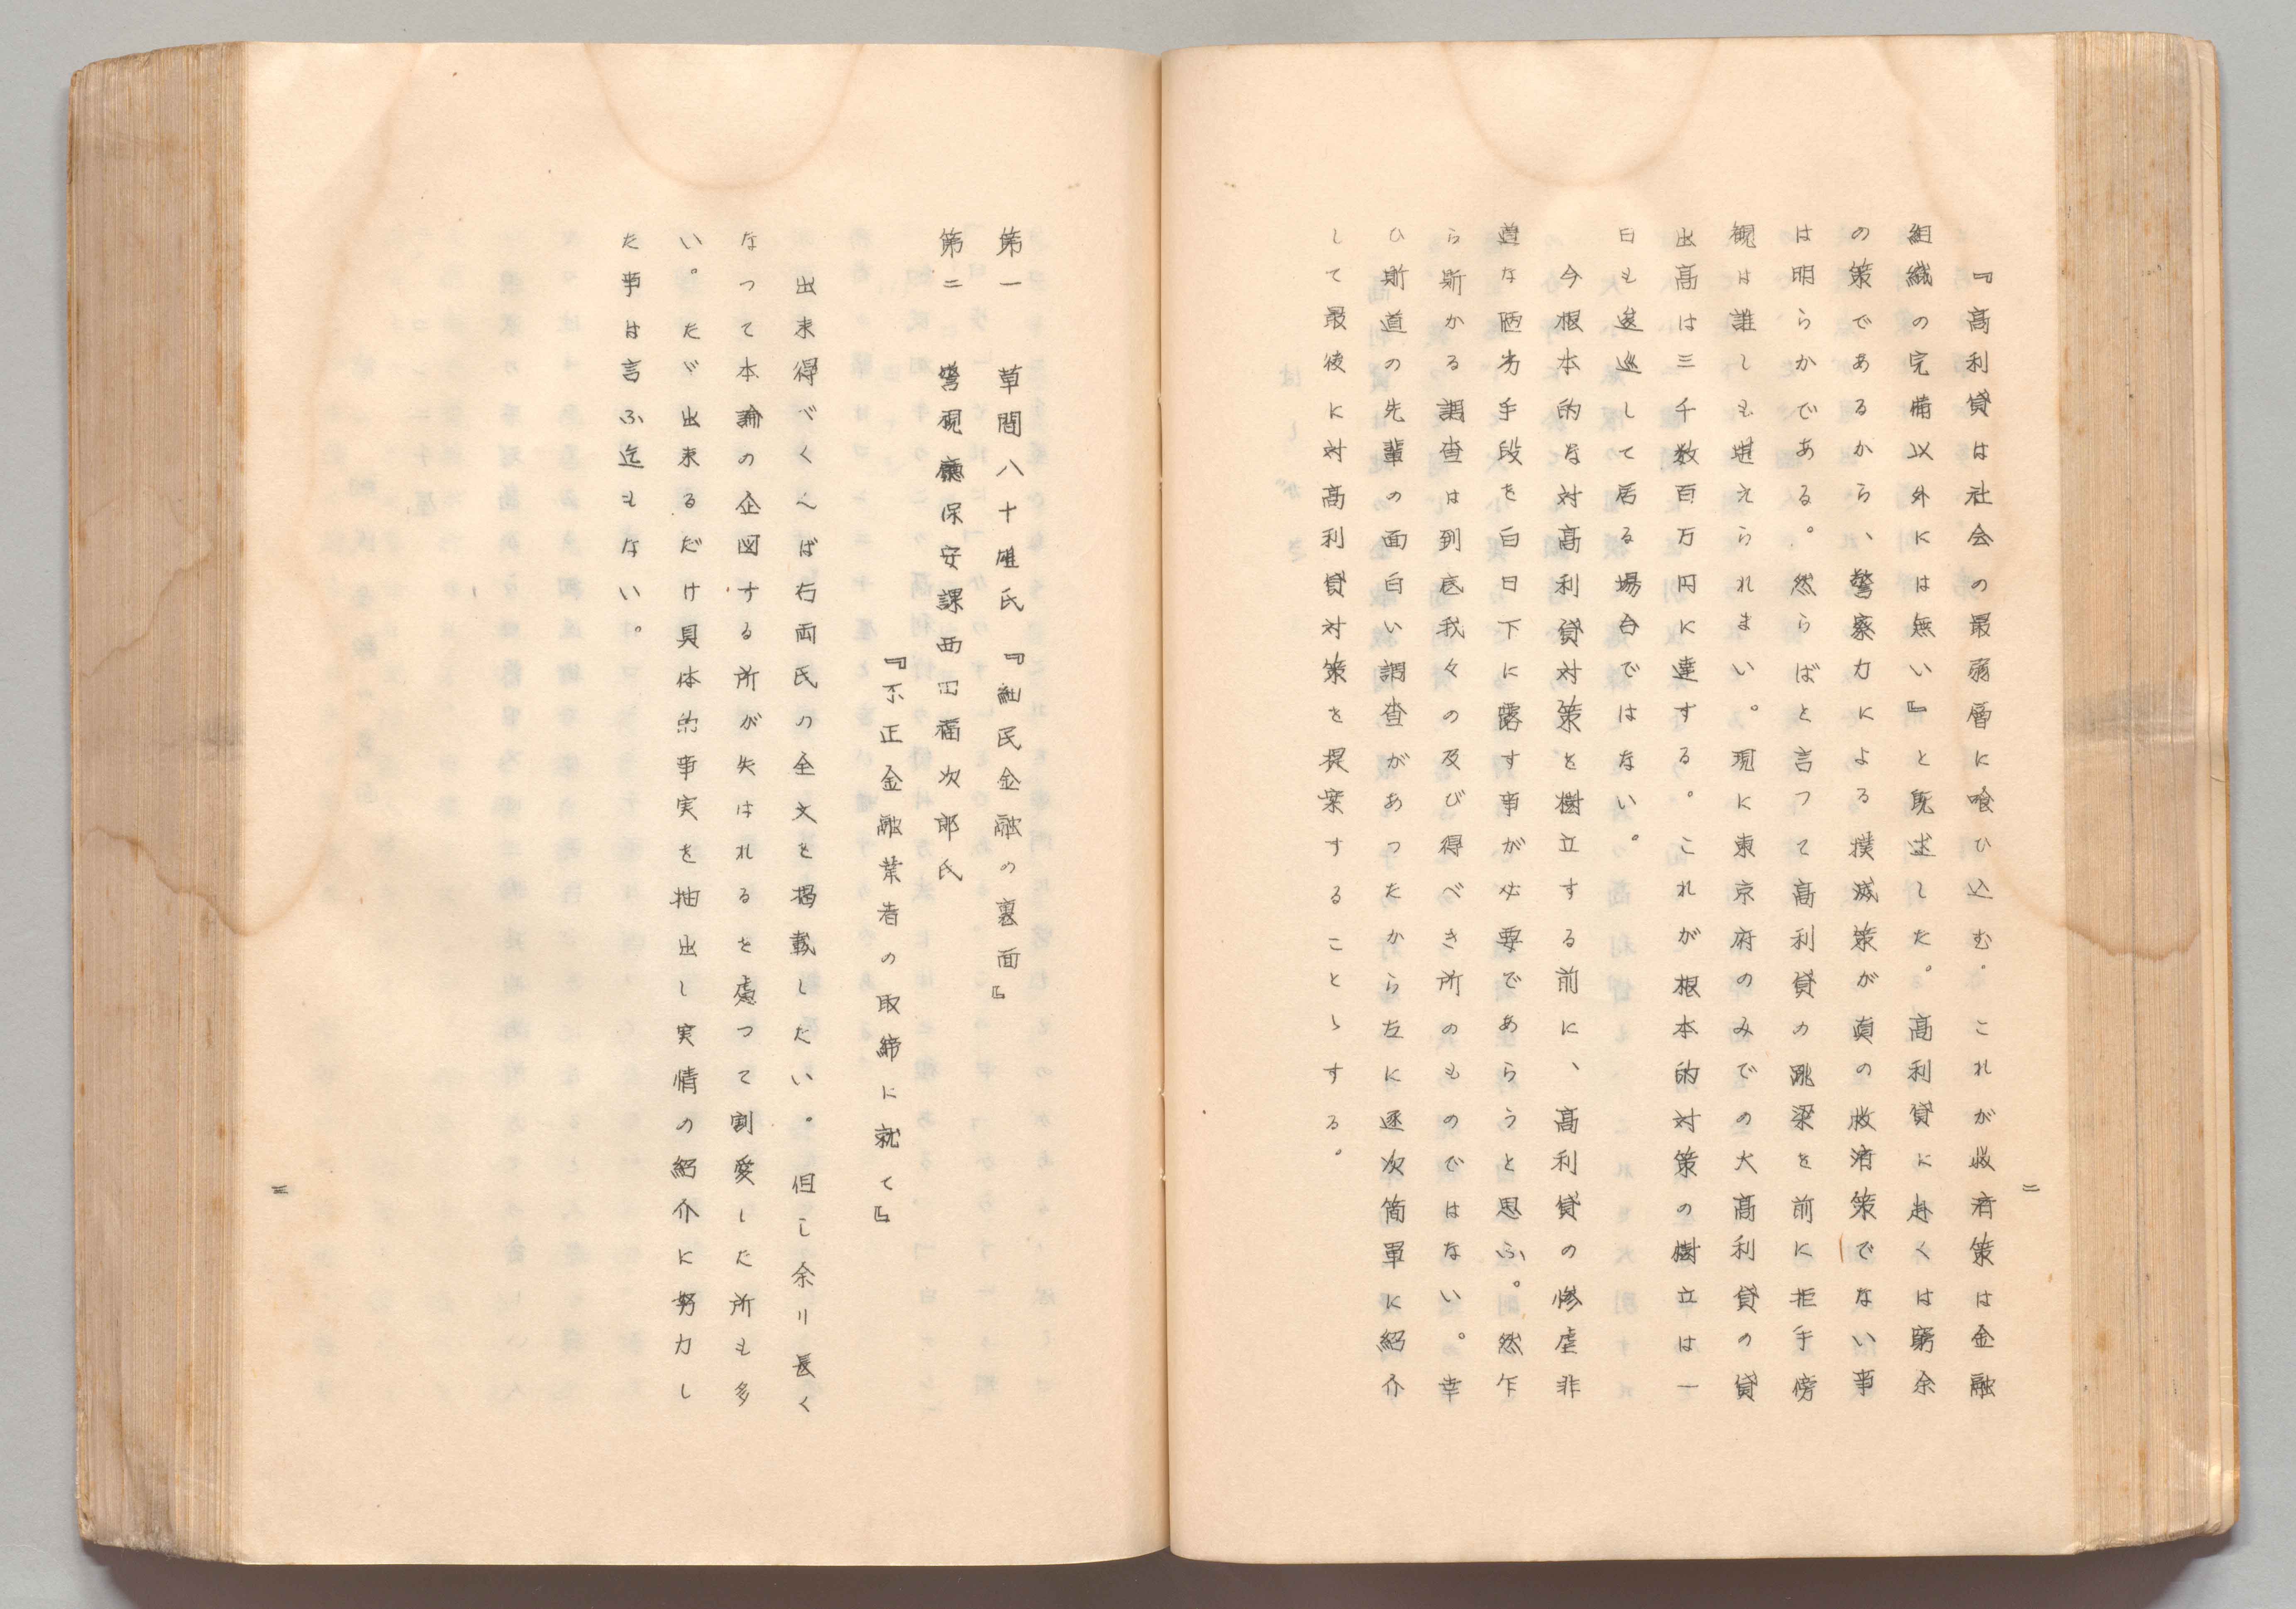 二
『高利貸は社会の最弱層に喰ひ込む。これが救済策は金融
組織の完備以外には無い』と既述した。高利貸に趣くは窮余
の策であるから、警察力による撲滅策が真の救済策でない事
は明らかである。然らばと言つて高利貸の跳梁を前に拒手傍
観は誰しも堪えられまい。現に東京府のみでの大高利貸の貸
出高は三千数百万円に達する。これが根本的対策の樹立は一
日も逡巡して居る場合ではない。
今根本的な対高利貸対策を樹立する前に、高利貸の惨虐非
道な陋劣手段を白日下に露す事が必要であらうと思ふ。然乍
ら斯かる調査は到底我々の及び得べき所のものではない。幸
ひ斯道の先輩の面白い調査があつたから左に逐次簡単に紹介
して最後に対高利貸対策を提案することゝする。
第一 草間八十雄氏『細民金融の裏面』
第二 警視廳保安課西田福次郎氏
『不正金融業者の取締に就て』
出来得べくんば右両氏の全文を掲載したい。但し余り長く
なつて本論の企図する所が失はれるを慮つて割愛した所も多
い。たゞ出来るだけ具体的事実を抽出し実情の紹介に努力し
た事は言ふ迄もない。
三